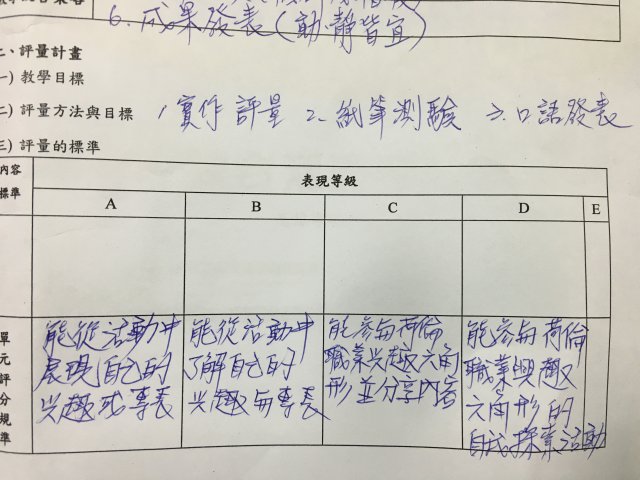 6. 成果發表(動.靜皆宜)
二、評量計畫
一) 教學目標
二) 評量方法與目標 1.實作評量 2.紙筆測驗 3.口語發表
三) 評量的標準
內容
標準
表現等級
A B C D E
單元評分規準
能從活動中
展現自己的
興趣或專長
能從活動中
了解自己的
興趣與專長
能參與荷倫
職業興趣六角
形並分享內容
能參與荷倫
職業興趣
六角形的
自我探索活動